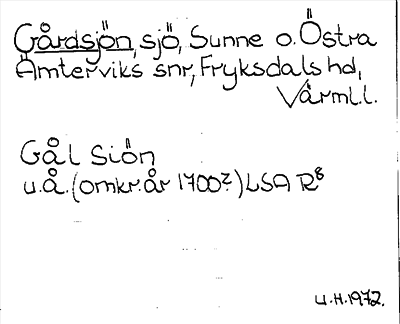 Gårdsjön, sjö, Sunne o. Östra
Ämterviks snr, Fryksdals hd,
Värml.l.
Gål Siön
u.å. (omkr. år 1700?) LSA R8
U.H. 1972.